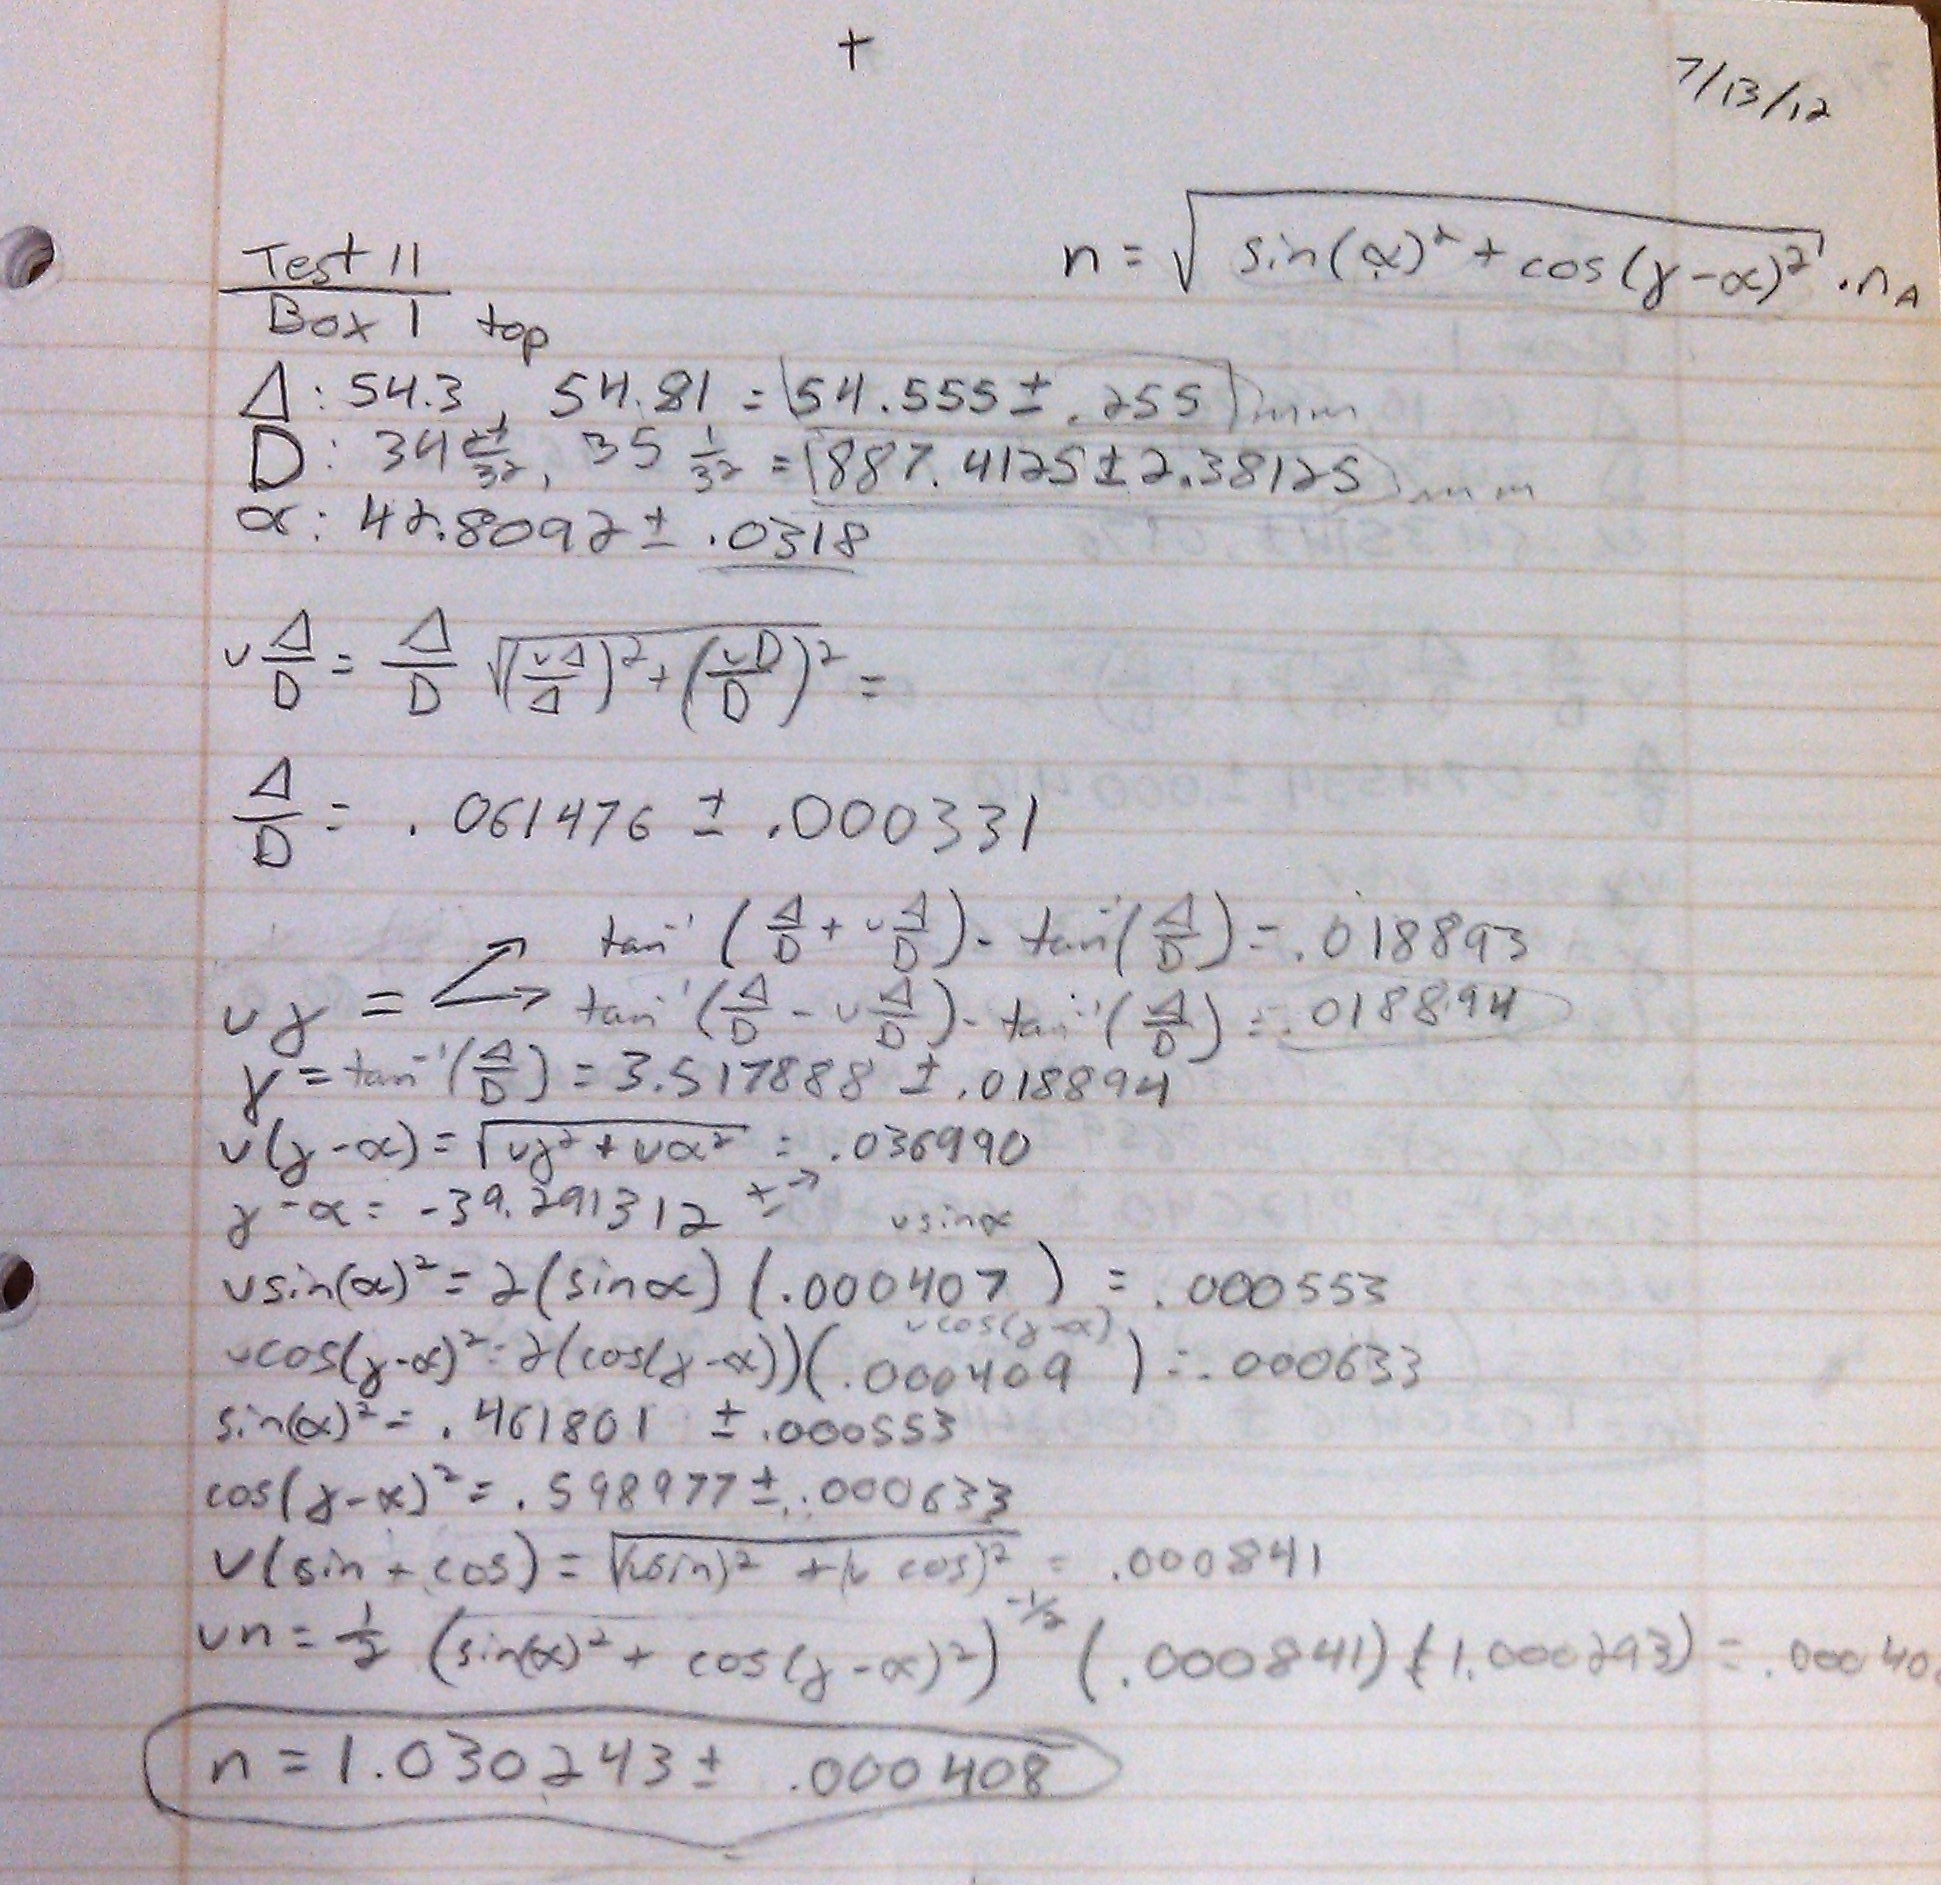 +
7/13/12
n = √(sin(α)² + cos(γ-α)²) · n_A
Test 11
Box 1 top
Δ: 54.3, 54.81 = 54.555 ± .255 mm
D: 34 27/32, 35 1/32 = 887.4125 ± 2.38125 mm
α: 42.8092 ± .0318
υ Δ/D = Δ/D √((υΔ/Δ)² + (υD/D)²) =
Δ/D = .061476 ± .000331
tan⁻¹(Δ/D + υ Δ/D) - tan⁻¹(Δ/D) = .018893
υγ =
tan⁻¹(Δ/D - υ Δ/D) - tan⁻¹(Δ/D) = .018894
γ = tan⁻¹(Δ/D) = 3.517888 ± .018894
υ(γ-α) = √(υγ² + υα²) = .036990
γ-α = -39.291312 ± →
υsinα
υsin(α)² = 2(sinα)(.000407) = .000553
υcos(γ-α)
υcos(γ-α)² = 2(cos(γ-α))(.000409) = .000633
sin(α)² = .461801 ± .000553
cos(γ-α)² = .598977 ± .000633
υ(sin + cos) = √((υsin)² + (υ cos)²) = .000841
υn = 1/2 (sin(α)² + cos(γ-α)²)^-1/2 (.000841)(1.000293) = .00040
n = 1.030243 ± .000408